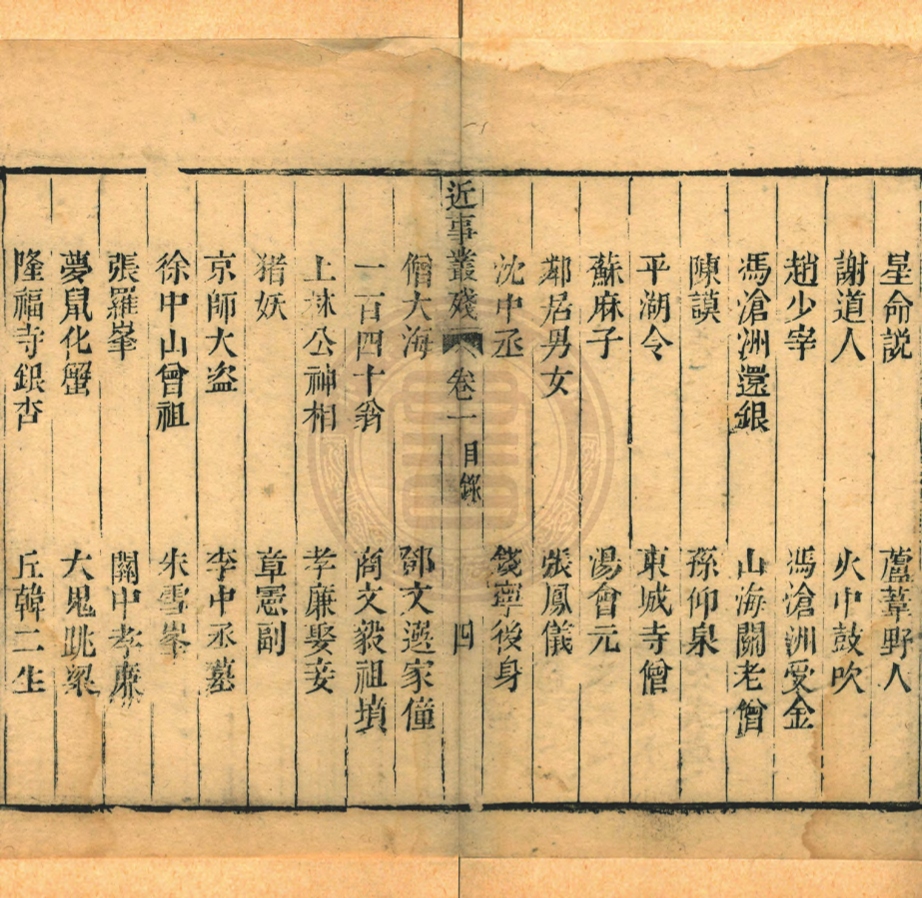 星命説 蘆葦野人
謝道人 火中鼓吹
趙少宰 馮滄洲受金
馮滄洲還銀 山海關老僧
陳謨 孫仰泉
平湖令 東城寺僧
蘇麻子 湯會元
鄰居男女 張鳳儀
沈中丞 後身
近事叢殘 卷一 目錄 四
僧大海 鄧文邊家僮
一百四十翁 商文毅祖墳
上袜公神相 孝廉娶妾
猪妖 章憲副
京師大盗 李中丞墓
徐中山曾祖 朱雪峯
張羅峯 關中孝廉
夢鼠化蟹 大鬼跳梁
隆福寺銀杏 丘韓二生